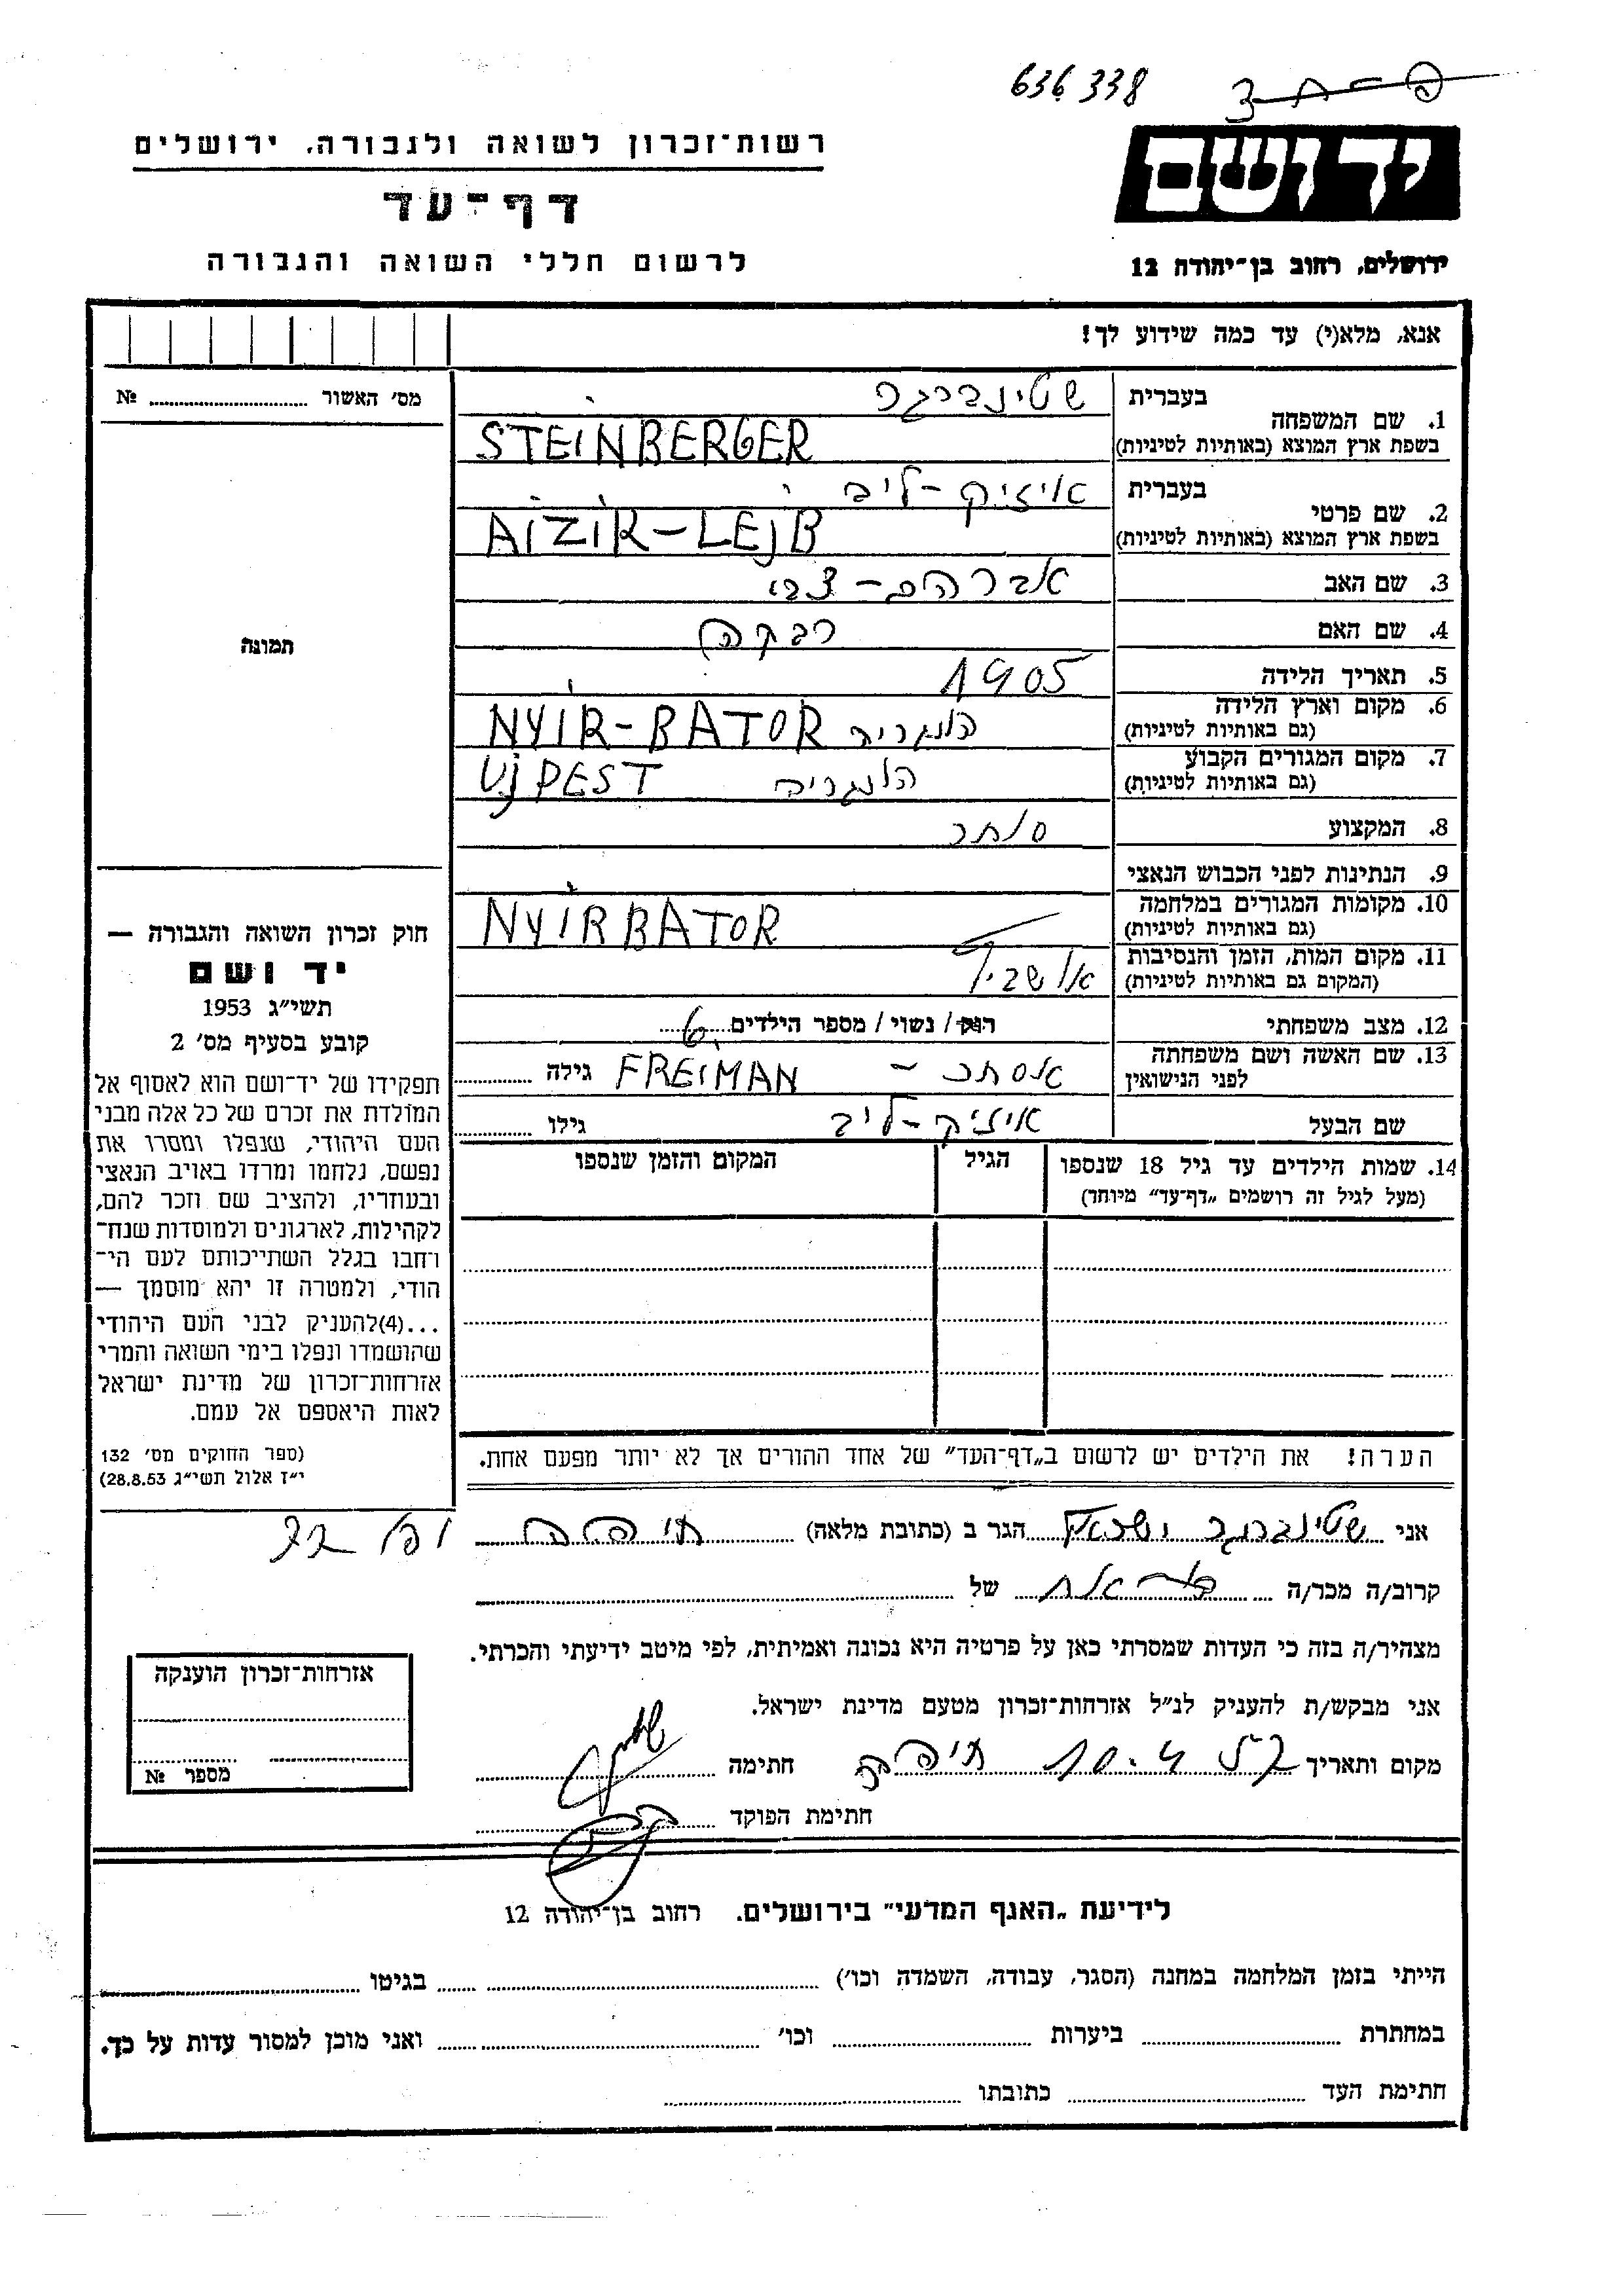 636 338
רשות־זכרון לשואה ולגבורה. ירושלים
דף־עד
לרשום חללי השואה והגבורה
יד ושם
ירושלים, רחוב בן־יהודה 12
אנא, מלא(י) עד כמה שידוע לך!
מס׳ האשור № 
תמונה
1. שם המשפחה
בעברית שטינברגר
בשפת ארץ המוצא (באותיות לטיניות) STEINBERGER
2. שם פרטי
בעברית איזיק-ליב
בשפת ארץ המוצא (באותיות לטיניות) AIZIK-LEJB
3. שם האב אברהם-צבי
4. שם האם רבקה
5. תאריך הלידה 1905
6. מקום וארץ הלידה
(גם באותיות לטיניות) הונגריה NYIR-BATOR
7. מקום המגורים הקבוע
(גם באותיות לטיניות) הונגריה UJPEST
8. המקצוע סוחר
9. הנתינות לפני הכבוש הנאצי
10. מקומות המגורים במלחמה
(גם באותיות לטיניות) NYIRBATOR
11. מקום המות, הזמן והנסיבות
(המקום גם באותיות לטיניות) אושביץ
12. מצב משפחתי רווק / נשוי / מספר הילדים 6
13. שם האשה ושם משפחתה
לפני הנישואין אסתר - FREIMAN גילה
שם הבעל איזיק-ליב גילו
14. שמות הילדים עד גיל 18 שנספו
(מעל לגיל זה רושמים „דף־עד” מיוחד)
הגיל
המקום והזמן שנספו
חוק זכרון השואה והגבורה —
יד ושם
תשי״ג 1953
קובע בסעיף מס׳ 2
תפקידו של יד־ושם הוא לאסוף אל
המולדת את זכרם של כל אלה מבני
העם היהודי, שנפלו ומסרו את
נפשם, נלחמו ומרדו באויב הנאצי
ובעוזריו, ולהציב שם וזכר להם,
לקהילות, לארגונים ולמוסדות שנח־
רבו בגלל השתייכותם לעם הי־
הודי, ולמטרה זו יהא מוסמך —
...(4)להעניק לבני העם היהודי
שהושמדו ונפלו בימי השואה והמרי
אזרחות־זכרון של מדינת ישראל
לאות היאספם אל עמם.
(ספר החוקים מס׳ 132
י״ז אלול תשי״ג 28.8.53)
הערה! את הילדים יש לרשום ב„דף־העד” של אחד ההורים אך לא יותר מפעם אחת.
אני שטינברגר הגר ב (כתובת מלאה) חיפה
קרוב/ה מכר/ה של
מצהיר/ה בזה כי העדות שמסרתי כאן על פרטיה היא נכונה ואמיתית, לפי מיטב ידיעתי והכרתי.
אני מבקש/ת להעניק לנ״ל אזרחות־זכרון מטעם מדינת ישראל.
מקום ותאריך חיפה חתימה
חתימת הפוקד
אזרחות־זכרון הוענקה
מספר №
לידיעת „האגף המדעי” בירושלים. רחוב בן־יהודה 12
הייתי בזמן המלחמה במחנה (הסגר, עבודה, השמדה וכו׳) בגיטו
במחתרת ביערות וכו׳ ואני מוכן למסור עדות על כך.
חתימת העד כתובתו